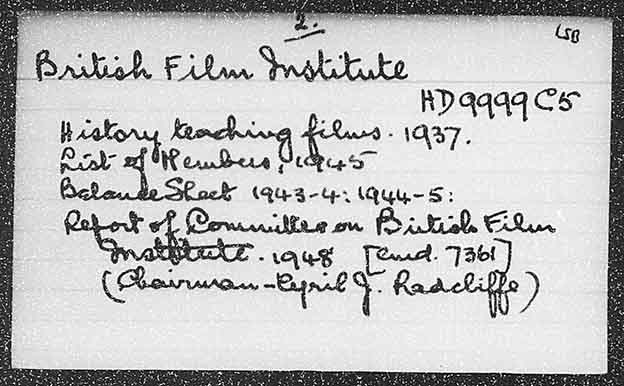 2.
LSB
British Film Institute
HD9999C5
History teaching films. 1937.
List of Members, 1945
Balance Sheet 1943-4: 1944-5:
Report of Committee on British Film
Institute. 1948 [Cmd. 7361]
(Chairman - Cyril J. Radcliffe)